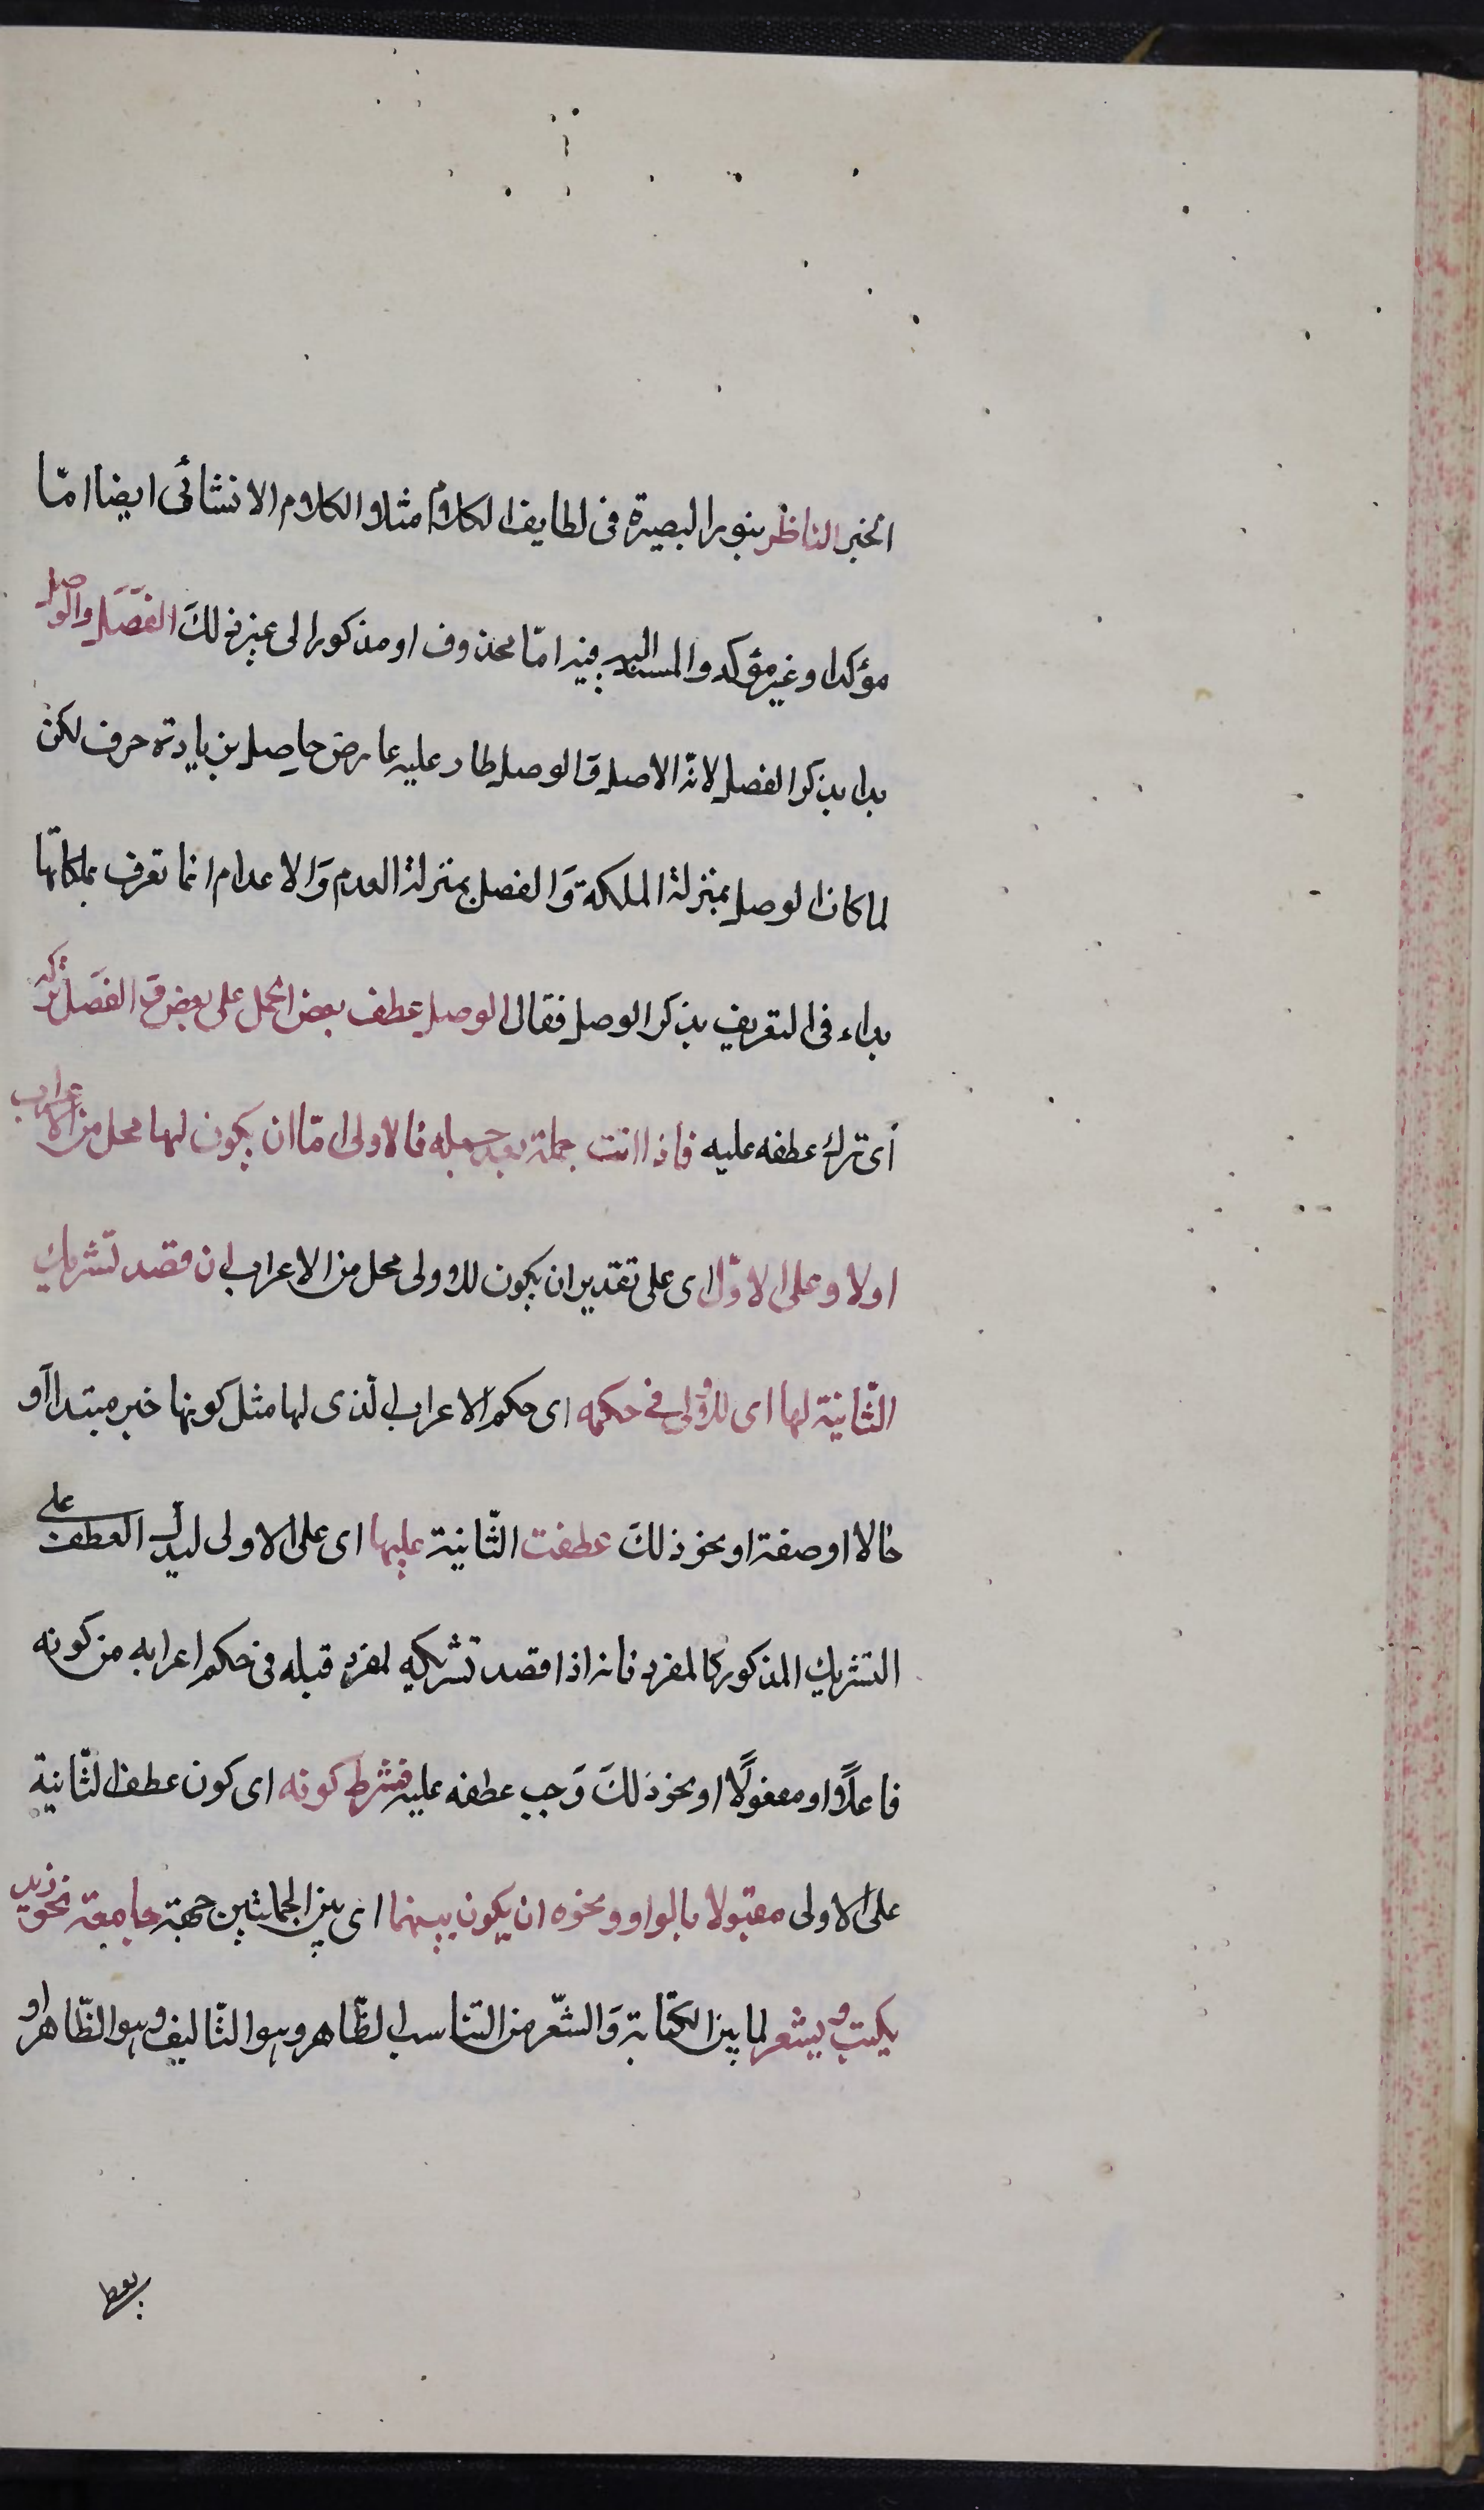 الخبر الناظر بنور البصيرة فى لطايف الكلام مثلا والكلام الانشائى ايضا امّا
مؤكدا وغير مؤكد والمسند اليه فيه امّا محذوف او مذكور الى غير ذلكَ الفَصَل والوصل
بدا بذكر الفصل لانّه الاصل وَالوصل طار عليه عارض حاصل بزيادة حرف لكن
لما كان الوصل بمنزلة الملكة وَالفصل بمنزلة العدم وَالاعدام انما تعرف بملكاتها
بداء فى التعريف بذكر الوصل فقال الوصل عطف بعض الجمل على بعض وَالفصَل تركه
أى ترك عطفه عليه فاذا اتت جملة بعد جمله فالاولى امّا ان يكون لها محل من الاعراب
اولا وعلى الاوّل اى على تقدير ان يكون للاولى محل من الاعراب ان قصد تشريك
الثّانية لها اى للاولى فى حكمه اى حكم الاعراب الّذى لها مثل كونها خبر مبتدا أو
حالا او صفة او نحو ذلكَ عطفت الثّانية عليها اى على الاولى ليدلّ العطف على
التشريك المذكور كالمفرد فانه اذا قصد تشريكه لمفرد قبله فى حكم اعرابه من كونه
فاعلًا او مفعولًا او نحو ذلكَ وَجب عطفه عليه فشرط كونه اى كون عطف الثّانية
على الاولى مقبولا بالواو ونحوه ان يكون بينهما اى بين الجملتين جهة جامعة نحو زيد
يكتب ويشعر لما بين الكتابة وَالشّعر من التناسب الظّاهر وهو التّاليف وهو الظّاهر او
يعطى